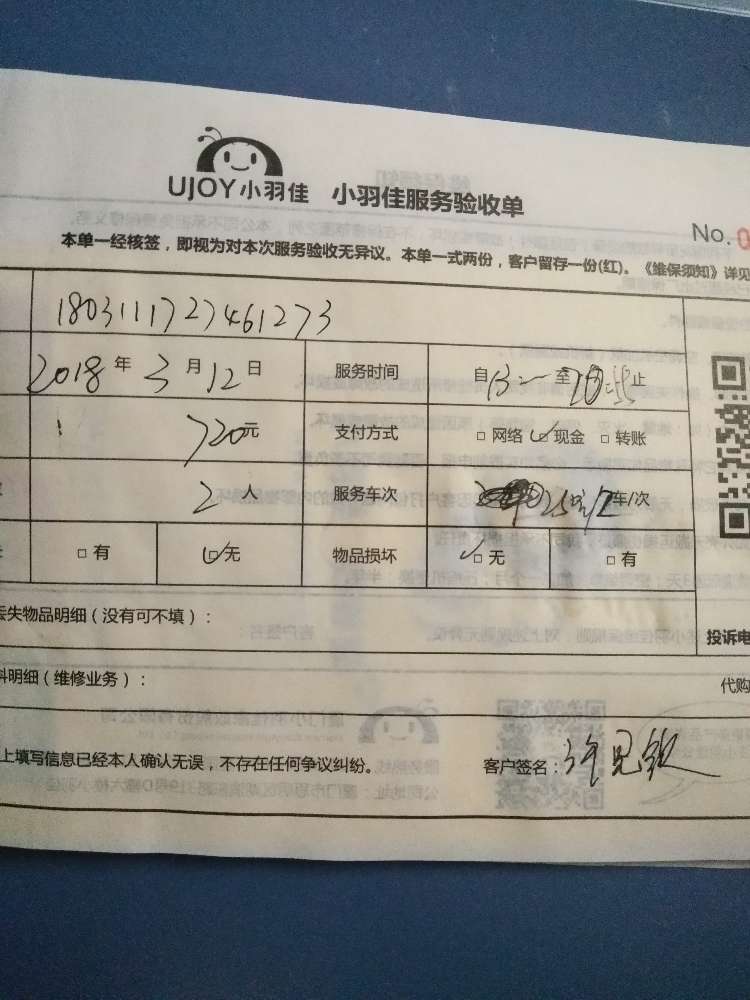 UJOY小羽佳 小羽佳服务验收单
No. 0
本单一经核签，即视为对本次服务验收无异议。本单一式两份，客户留存一份(红)。《维保须知》详见
1803111727461273
2018年3月12日 服务时间 自13:— 至 止
720元 支付方式 □网络 ☑现金 □转账
2人 服务车次 车/次
□有 ☑无 物品损坏 ☑无 □有
失物品明细（没有可不填）：
投诉电
料明细（维修业务）：
代购
上填写信息已经本人确认无误，不存在任何争议纠纷。 客户签名：